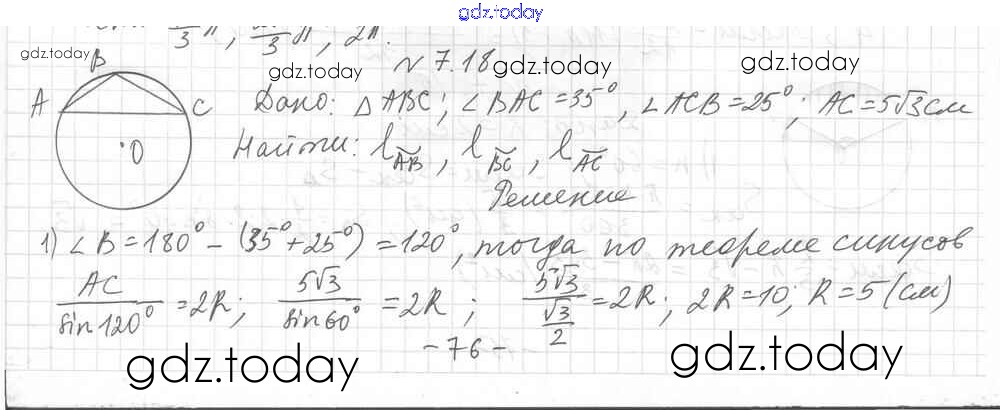 gdz.today
3 π, 3 π, 2π.
gdz.today
N 7.18 gdz.today
gdz.today
gdz.today
B
A
C
O
Дано: △ABC; ∠BAC=35°, ∠ACB=25°; AC=5√3см
Найти: l ⌣AB, l ⌣BC, l ⌣AC
Решение
1) ∠B=180°-(35°+25°)=120°, тогда по теореме синусов
AC/sin120° =2R; 5√3/sin60° =2R; 5√3/(√3/2) =2R; 2R=10; R=5(см)
-76-
gdz.today
gdz.today